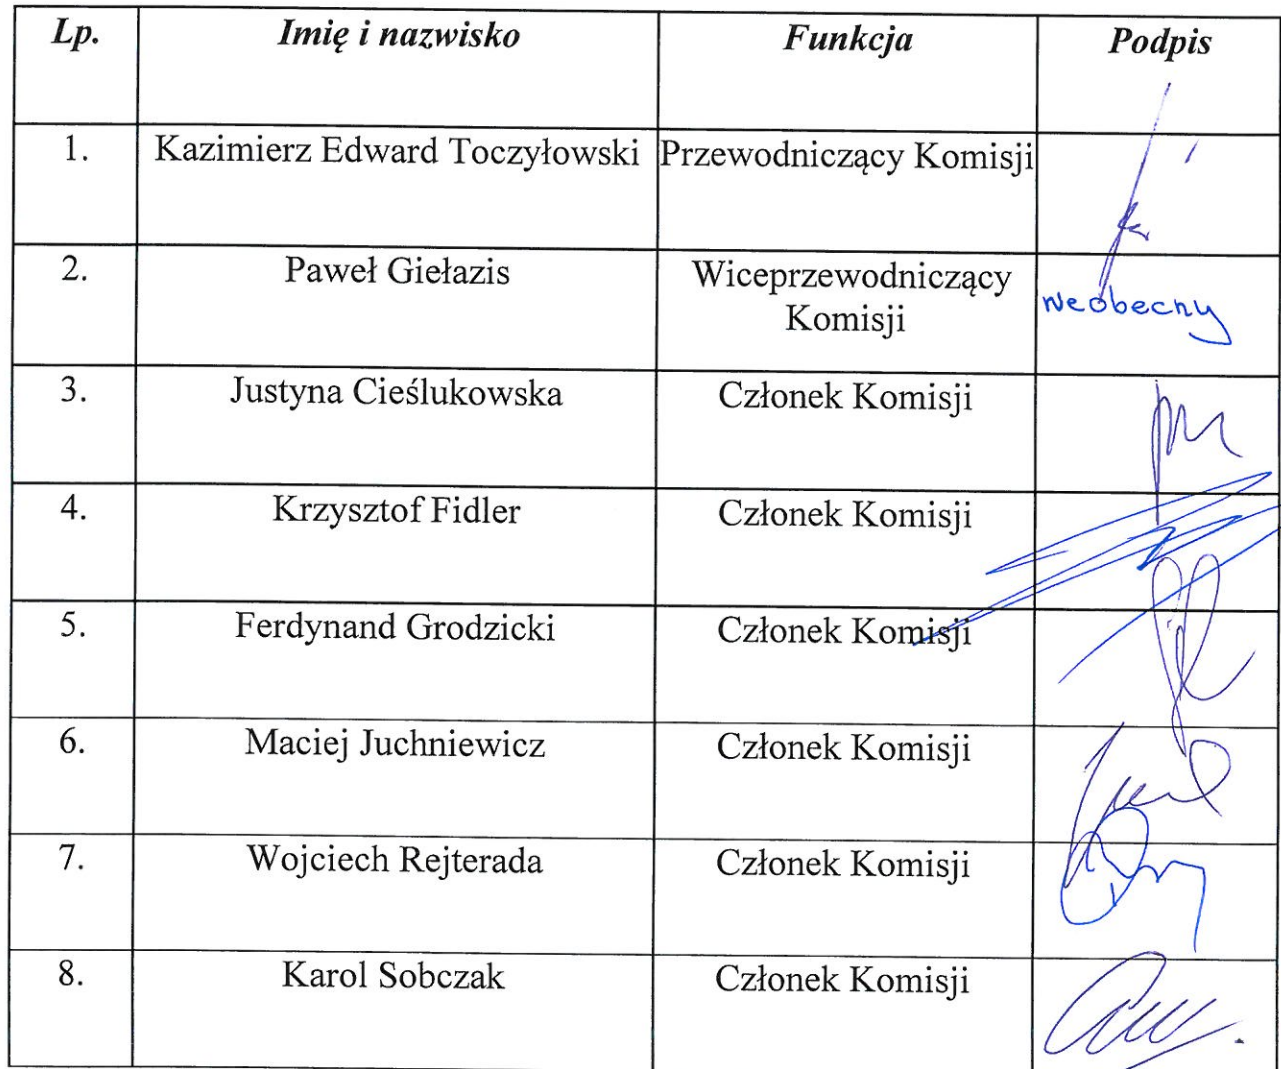 Lp. Imię i nazwisko Funkcja Podpis
1. Kazimierz Edward Toczyłowski Przewodniczący Komisji
2. Paweł Giełazis Wiceprzewodniczący
Komisji
Neobecny
3. Justyna Cieślukowska Członek Komisji
4. Krzysztof Fidler Członek Komisji
5. Ferdynand Grodzicki Członek Komisji
6. Maciej Juchniewicz Członek Komisji
7. Wojciech Rejterada Członek Komisji
8. Karol Sobczak Członek Komisji